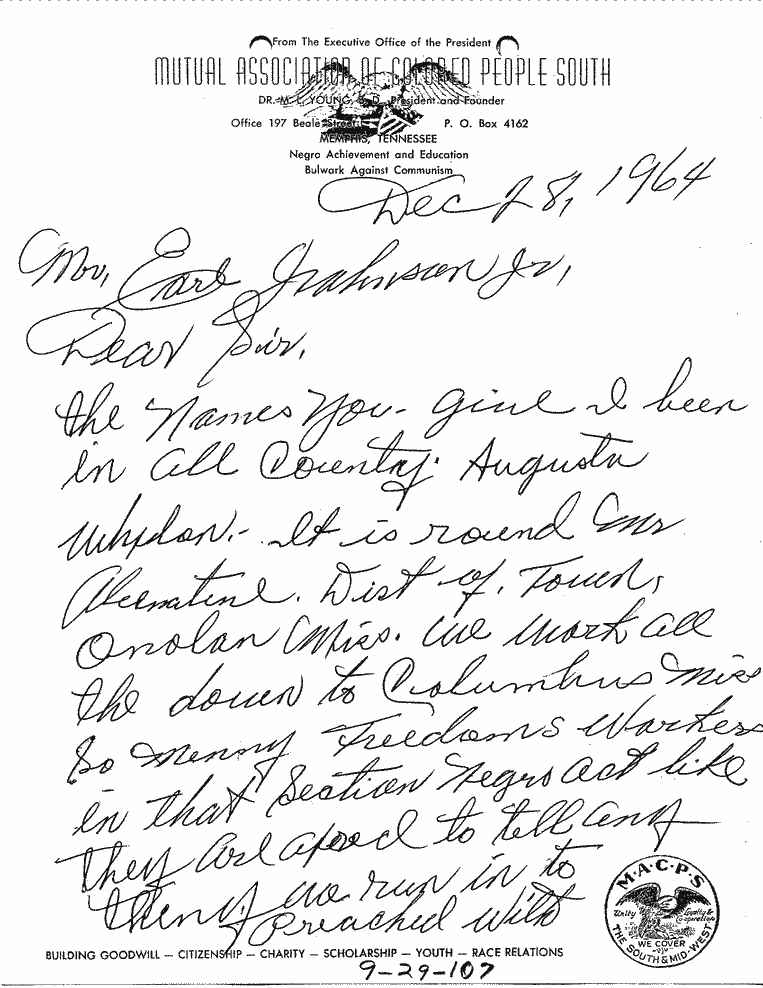 From The Executive Office of the President
MUTUAL ASSOCIATION OF COLORED PEOPLE SOUTH
DR. M. L. YOUNG, B. D., President and Founder
Office 197 Beale Street P. O. Box 4162
MEMPHIS, TENNESSEE
Negro Achievement and Education
Bulwark Against Communism
Dec 28, 1964
Mr, Earl Jr,
Dear Sir,
the Names You - give I been
in all County. Augusta
It is round Mr
Dist of, Town,
Miss. we work all
the down to Columbus Miss
So menny Freedoms Workers
in that Section Negro act like
they are to tell any
we run in to
Preached with
M.A.C.P.S
Unity Loyalty & Cooperation
WE COVER
THE SOUTH & MID-WEST
BUILDING GOODWILL — CITIZENSHIP — CHARITY — SCHOLARSHIP — YOUTH — RACE RELATIONS
9-29-107